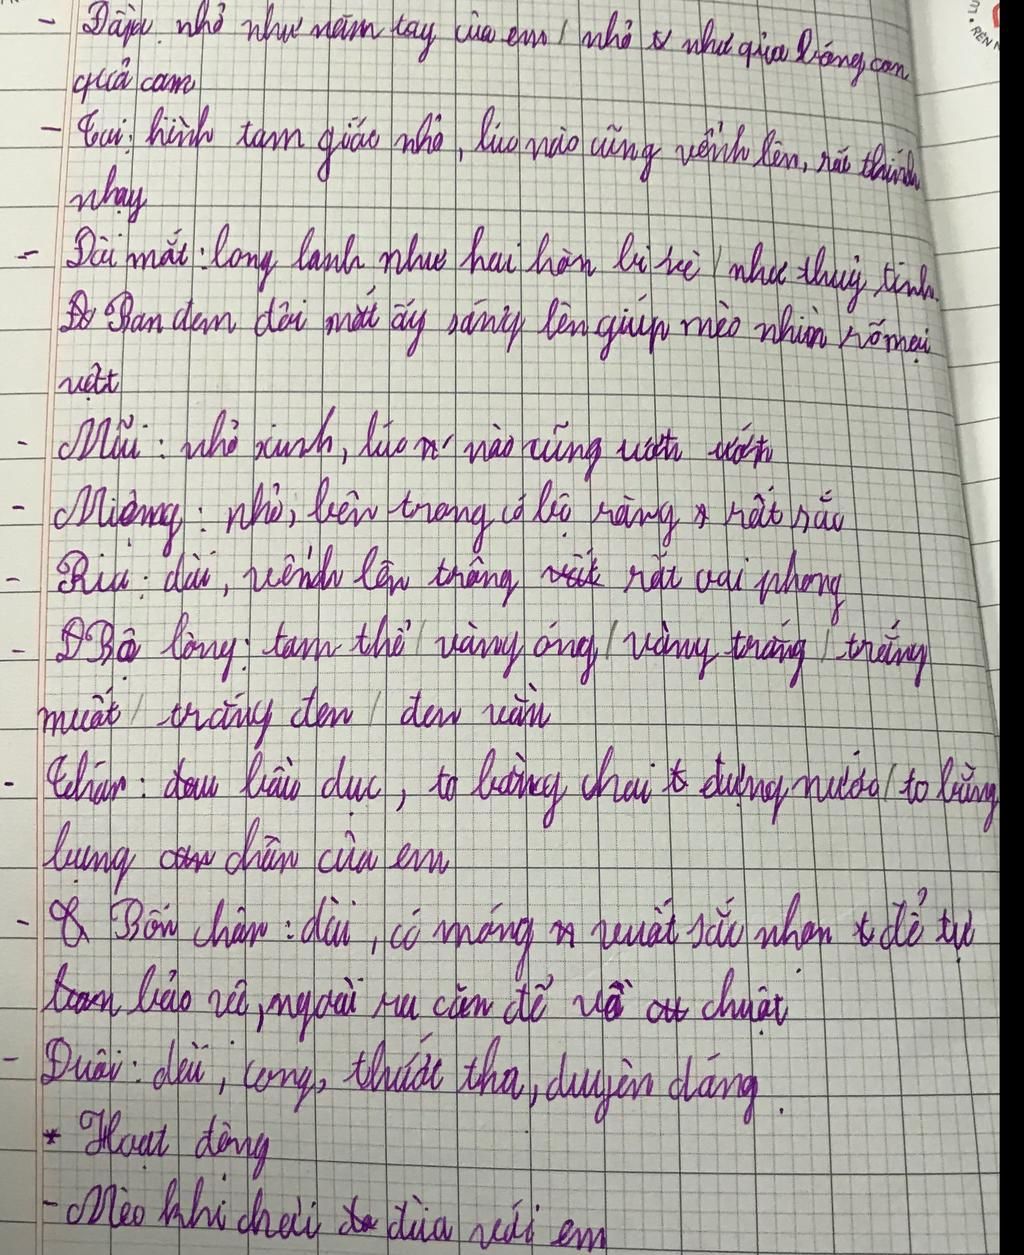 - Đầu: nhỏ như nắm tay của em / nhỏ như quả bóng con
quả cam
- Tai: hình tam giác nhỏ, lúc nào cũng vểnh lên, rất thính
nhạy
- Đôi mắt: long lanh như hai hòn bi ve / như thuỷ tinh.
Ban đêm đôi mắt ấy sáng lên giúp mèo nhìn rõ mọi
vật
- Mũi: nhỏ xinh, lúc nào cũng ươn ướt
- Miệng: nhỏ, bên trong có bộ răng rất sắc
- Ria: dài, vểnh lên trông rất oai phong
- Bộ lông: tam thể / vàng óng / vàng trắng / trắng
muốt / trắng đen / đen vằn
- Thân: bầu dục, to bằng chai đựng nước / to bằng
chân của em
- Bốn chân: dài, có móng vuốt sắc nhọn để tự
bảo vệ, ngoài ra còn để vồ chuột
- Đuôi: dài, cong, thướt tha, duyên dáng.
* Hoạt động
- Mèo khi chơi đùa với em
RÈN